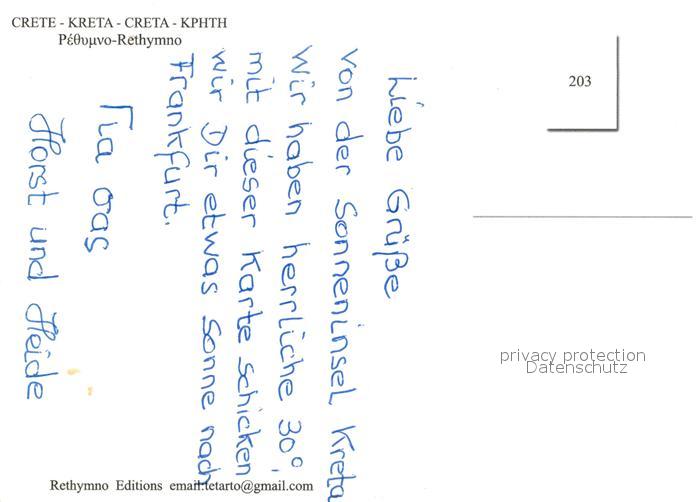 CRETE - KRETA - CRETA - ΚΡΗΤΗ
Ρέθυμνο-Rethymno
203
Liebe Grüße
von der Sonneninsel Kreta
Wir haben herrliche 30°,
mit dieser Karte schicken
wir Dir etwas Sonne nach
Frankfurt.
Γιa σας
Horst und Heide
privacy protection
Datenschutz
Rethymno Editions email:tetarto@gmail.com